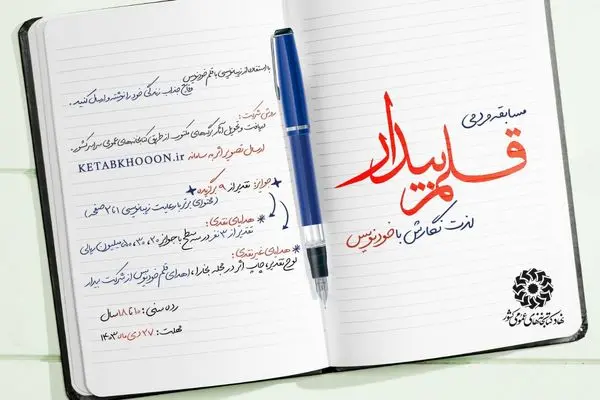 مسابقه مردمی
قلم بیدار
لذت نگارش با خودنویس
نهاد کتابخانه‌های عمومی کشور
با استفاده از زیبانویسی با قلم خودنویس
وقایع جذاب زندگی خود را نوشته و ارسال کنید.
روش شرکت:
دریافت و تحویل آثار برگه‌های مکتوب از طریق کتابخانه‌های عمومی سراسر کشور.
ارسال تصویر اثر به سامانه KETABKHOOON.ir
جوایز: تقدیر از ۹ برگزیده
(محتوای برتر با رعایت زیبانویسی ۱ تا ۲ صفحه)
* هدایای نقدی:
تقدیر از ۳ نفر در سه سطح با جوایز ۲۰، ۳۰، ۵۰ میلیون ریالی
* هدایای غیرنقدی:
لوح تقدیر، چاپ اثر در مجله بخارا، اهدای قلم خودنویس از شرکت بیدار
رده سنی: ۱۰ تا ۱۸ سال
مهلت: ۲۷ دی ماه ۱۴۰۳